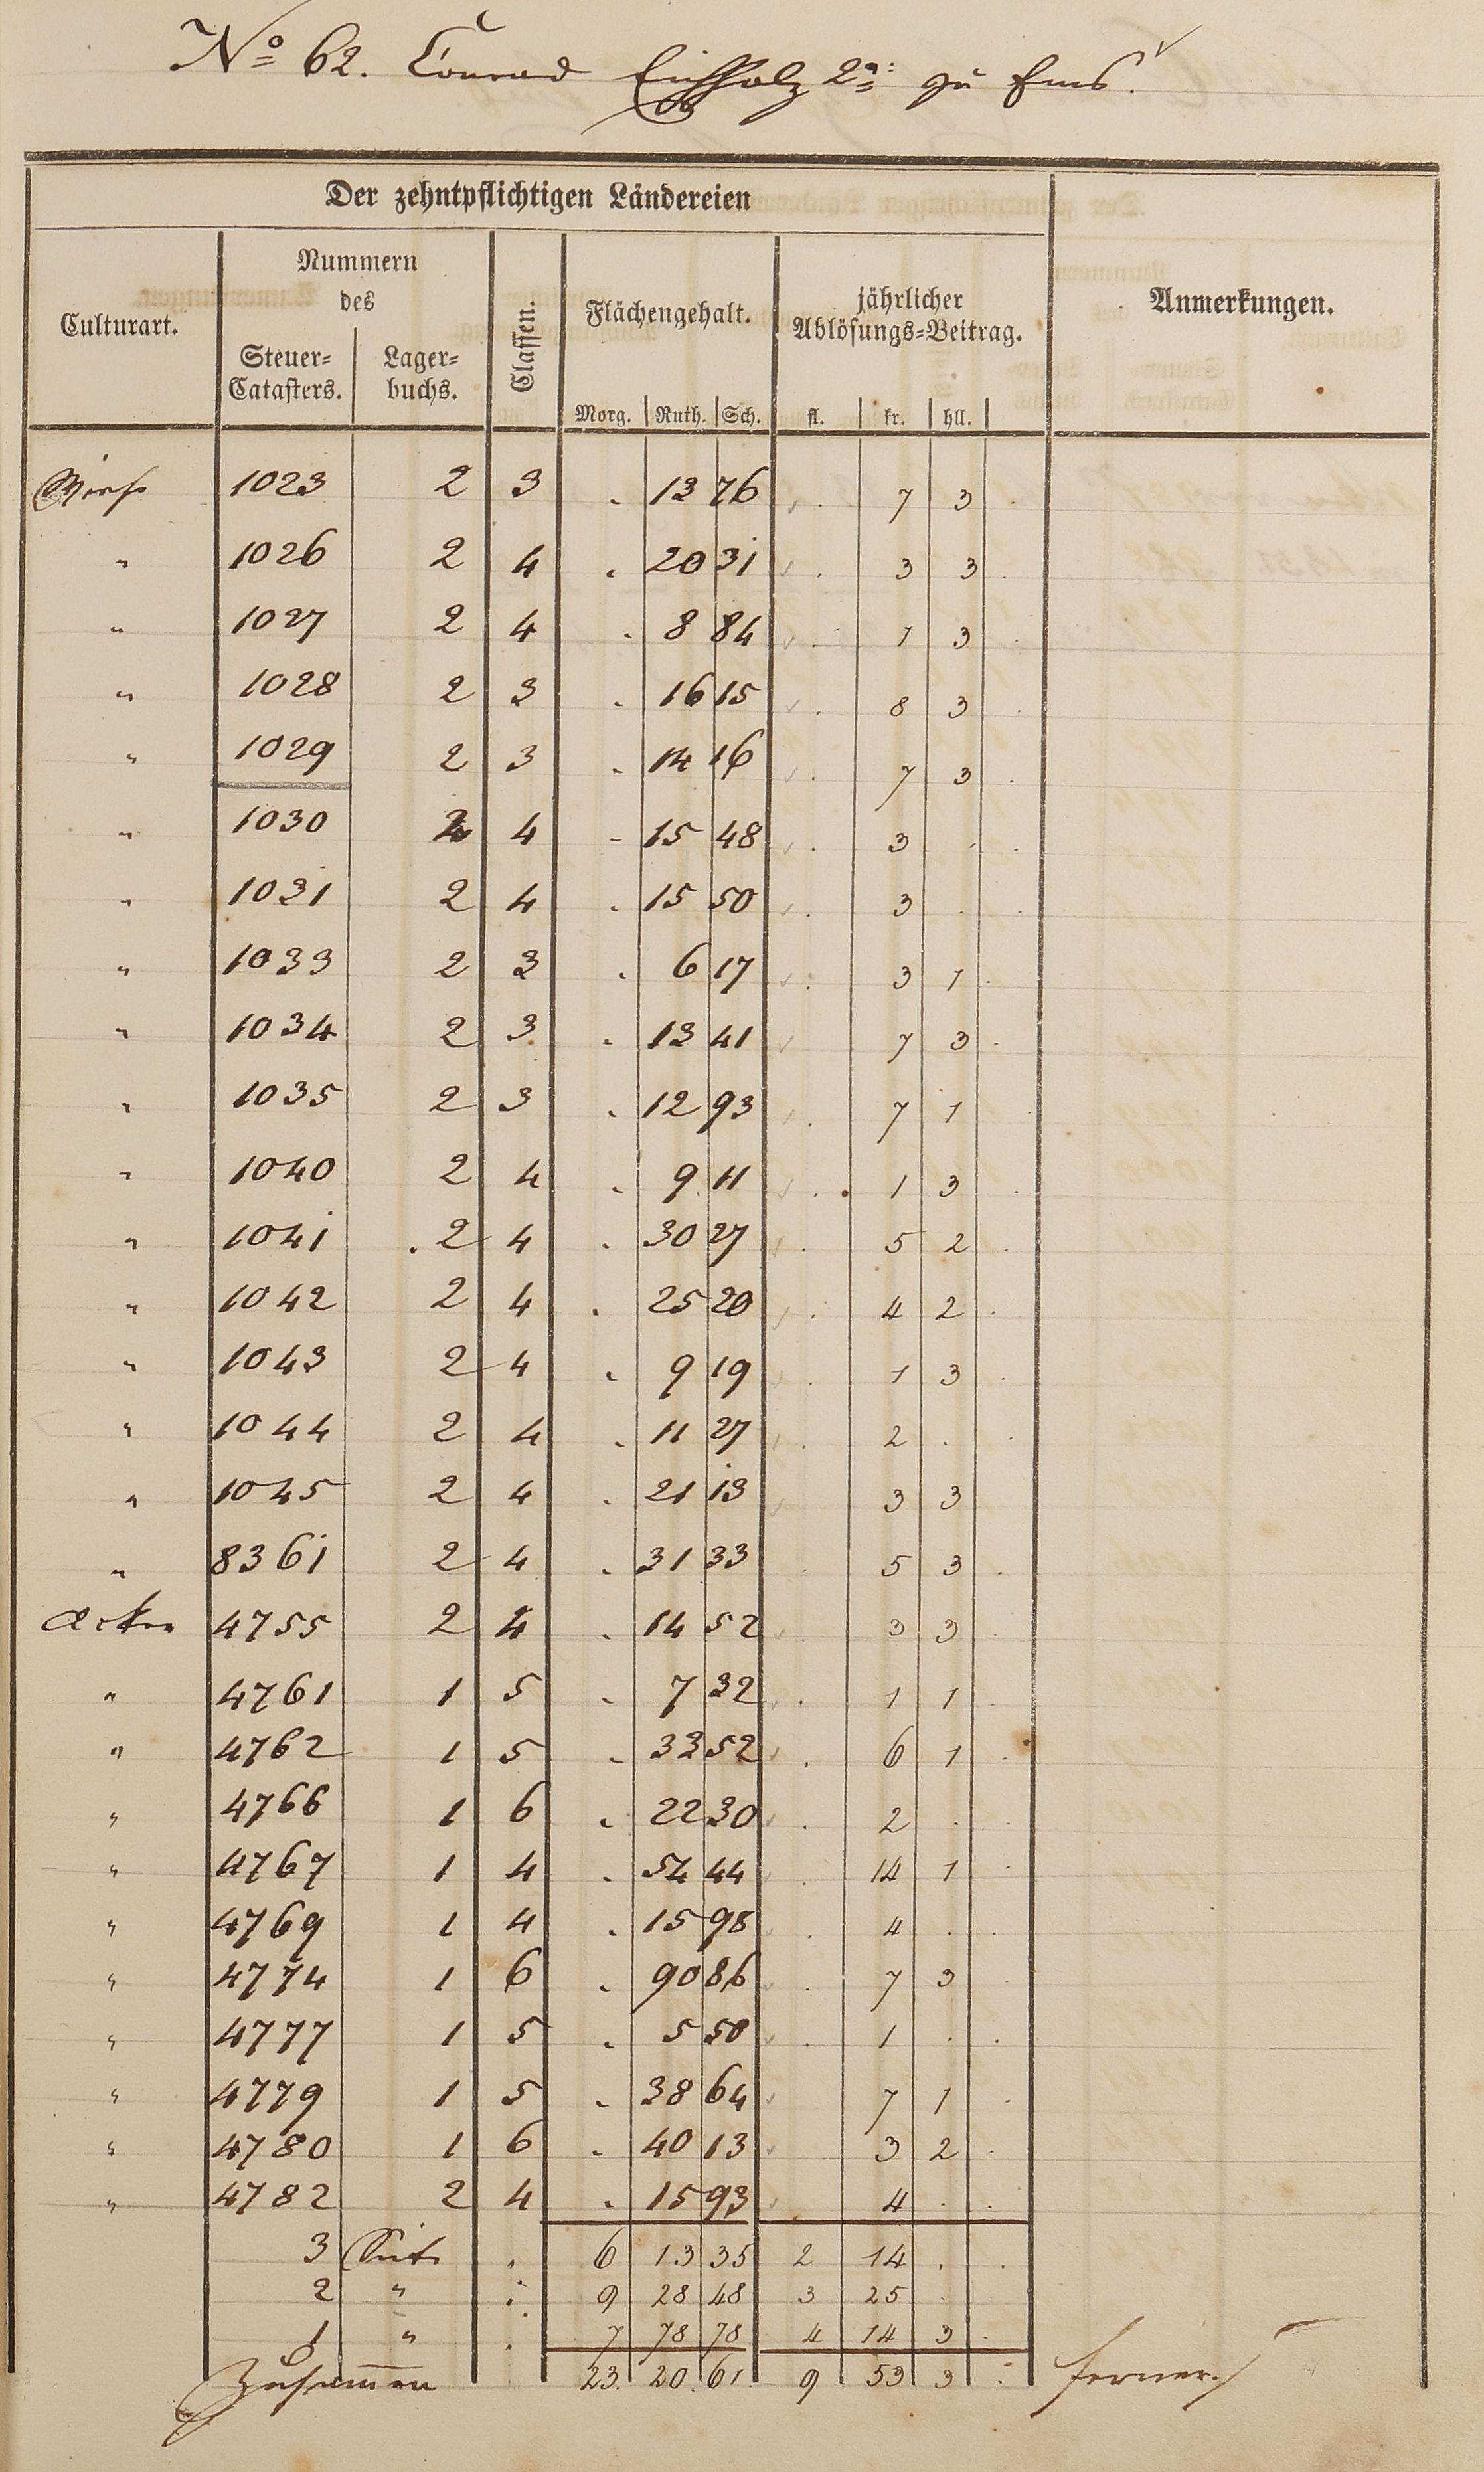 No 62. Conrad Eichholz 2r: zu Ems.
Der zehntpflichtigen Ländereien
Culturart.
Nummern
des
Steuer=
Catasters.
Lager=
buchs.
Classen.
Flächengehalt.
Morg. Ruth. Sch.
jährlicher
Ablösungs=Beitrag.
fl. kr. hll.
Anmerkungen.
Wiese 1023 2 3 . 13 76 . 7 3
" 1026 2 4 . 20 31 . 3 3
" 1027 2 4 . 8 84 . 1 3
" 1028 2 3 . 16 15 . 8 3
" 1029 2 3 . 14 16 . 7 3
" 1030 2 4 . 15 48 . 3 .
" 1031 2 4 . 15 50 . 3 .
" 1033 2 3 . 6 17 . 3 1
" 1034 2 3 . 13 41 7 3
" 1035 2 3 . 12 93 . 7 1
" 1040 2 4 . 9 11 . 1 3
" 1041 2 4 . 30 27 . 5 2
" 1042 2 4 . 25 20 . 4 2
" 1043 2 4 . 9 19 . 1 3
" 1044 2 4 . 11 27 . 2 .
" 1045 2 4 . 21 13 3 3
" 8361 2 4 . 31 33 . 5 3
Acker 4755 2 4 . 14 52 . 3 3
" 4761 1 5 . 7 32 . 1 1
" 4762 1 5 . 33 52 . 6 1
" 4766 1 6 . 22 30 . 2 .
" 4767 1 4 . 54 44 . 14 1
" 4769 1 4 . 15 98 . 4 .
" 4774 1 6 . 90 86 . 7 3
" 4777 1 5 . 5 50 . 1 .
" 4779 1 5 . 38 64 7 1
" 4780 1 6 . 40 13 3 2
" 4782 2 4 . 15 93 4 .
3 Seite . 6 13 35 2 14 .
2 " . 9 28 48 3 25 .
1 " . 7 78 78 4 14 3
Zusammen 23. 20. 61. 9 53 3 ferner.